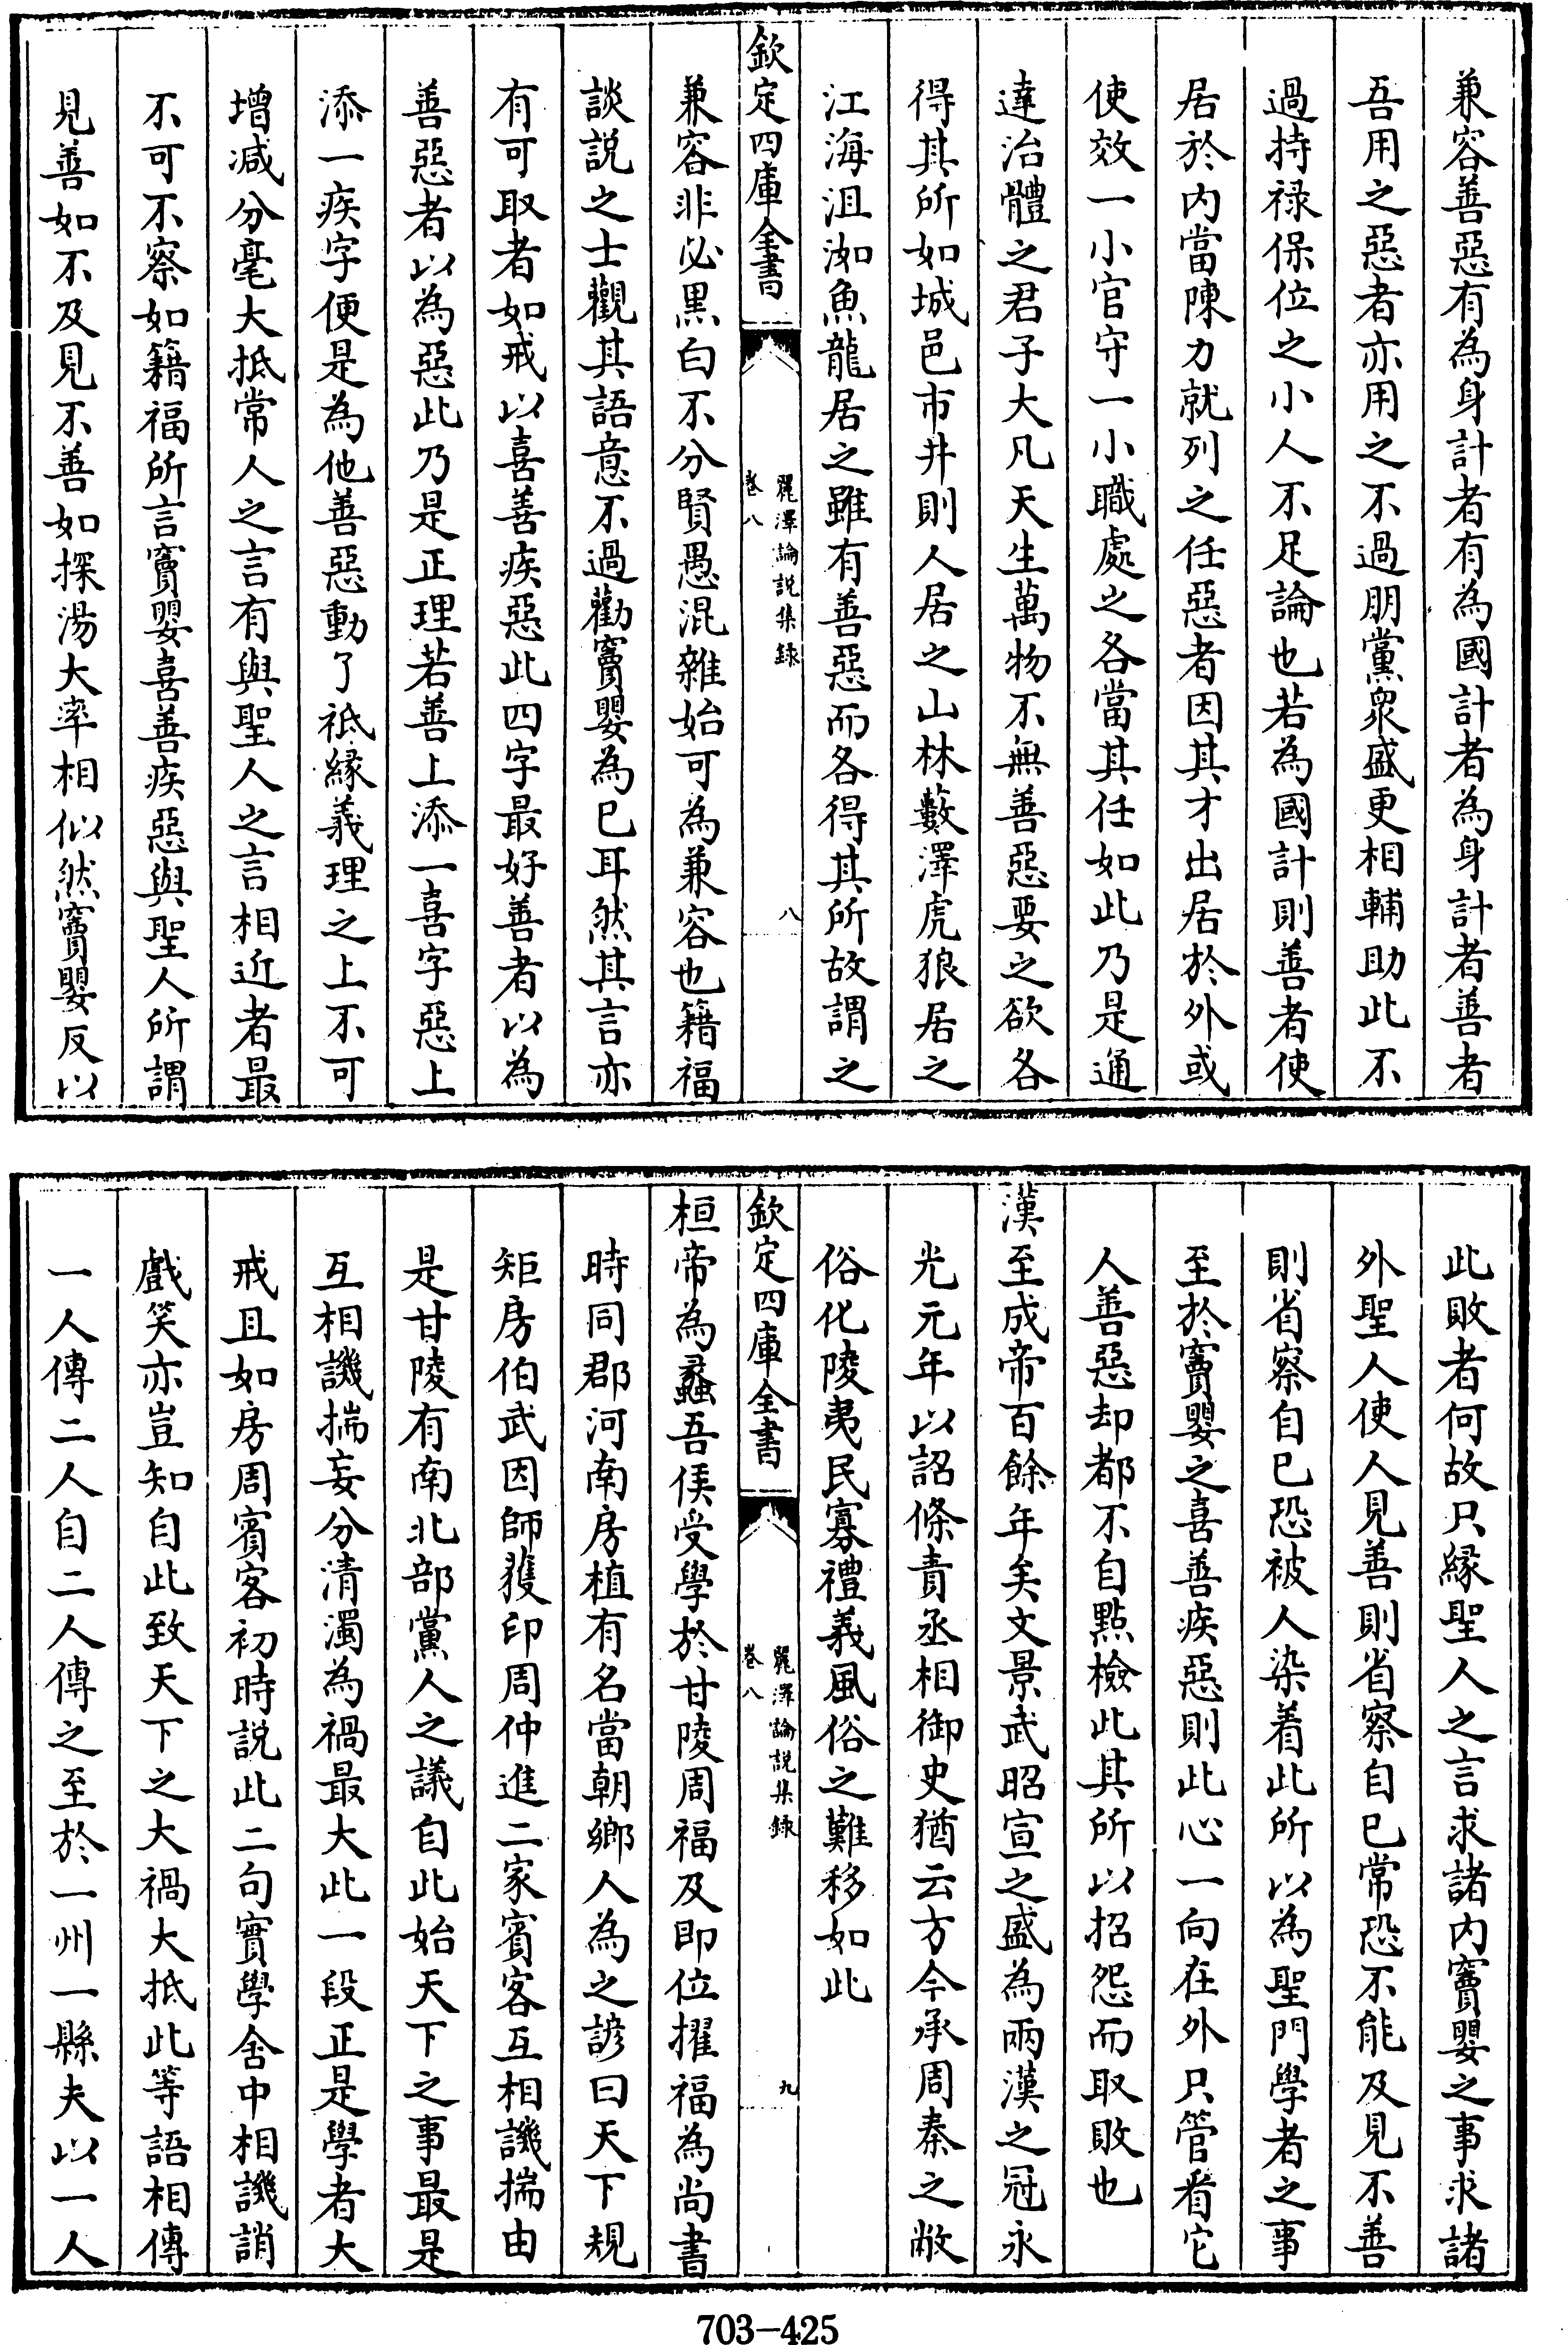 兼容善惡有為身計者有為國計者為身計者善者
吾用之惡者亦用之不過朋黨衆盛更相輔助此不
過持禄保位之小人不足論也若為國計則善者使
居於内當陳力就列之任惡者因其才出居於外或
使效一小官守一小職處之各當其任如此乃是通
達治體之君子大凡天生萬物不無善惡要之欲各
得其所如城邑市井則人居之山林藪澤虎狼居之
江海沮洳魚龍居之雖有善惡而各得其所故謂之
欽定四庫全書
麗澤論説集録
卷八
八
兼容非必黒白不分賢愚混雜始可為兼容也籍福
談説之士觀其語意不過勸竇嬰為已耳然其言亦
有可取者如戒以喜善疾惡此四字最好善者以為
善惡者以為惡此乃是正理若善上添一喜字惡上
添一疾字便是為他善惡動了祗緣義理之上不可
增減分毫大抵常人之言有與聖人之言相近者最
不可不察如籍福所言竇嬰喜善疾惡與聖人所謂
見善如不及見不善如探湯大率相似然竇嬰反以
此敗者何故只緣聖人之言求諸内竇嬰之事求諸
外聖人使人見善則省察自已常恐不能及見不善
則省察自已恐被人染着此所以為聖門學者之事
至於竇嬰之喜善疾惡則此心一向在外只管看它
人善惡却都不自點檢此其所以招怨而取敗也
漢至成帝百餘年矣文景武昭宣之盛為兩漢之冠永
光元年以詔條責丞相御史猶云方今承周秦之敝
俗化陵夷民寡禮義風俗之難移如此
欽定四庫全書
麗澤論説集録
卷八
九
桓帝為蠡吾侯受學於甘陵周福及即位擢福為尚書
時同郡河南房植有名當朝鄉人為之諺曰天下規
矩房伯武因師獲印周仲進二家賓客互相譏揣由
是甘陵有南北部黨人之議自此始天下之事最是
互相譏揣妄分清濁為禍最大此一段正是學者大
戒且如房周賓客初時説此二句實學舍中相譏誚
戲笑亦豈知自此致天下之大禍大抵此等語相傳
一人傳二人自二人傳之至於一州一縣夫以一人
703-425